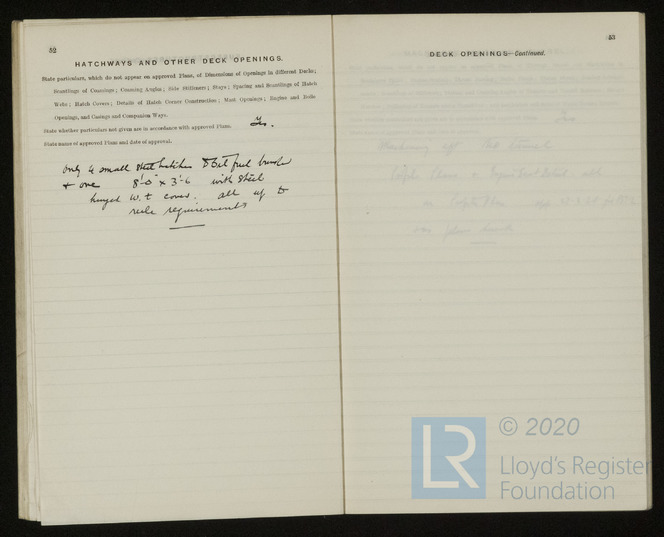 52
HATCHWAYS AND OTHER DECK OPENINGS.
State particulars, which do not appear on approved Plans, of Dimensions of Openings in different Decks;
Scantlings of Coamings; Coaming Angles; Side Stiffeners; Stays; Spacing and Scantlings of Hatch
Webs; Hatch Covers; Details of Hatch Corner Construction; Mast Openings; Engine and Boiler
Openings, and Casings and Companion Ways.
State whether particulars not given are in accordance with approved Plans. Yes.
State name of approved Plans and date of approval.
only 4 small steel hatches to oil fuel
+ one 8'-0" x 3'-6 with steel
hinged W.t covers. all up to
rule requirements
53
DECK OPENINGS—Continued.
© 2020
LR
Lloyd's Register
Foundation